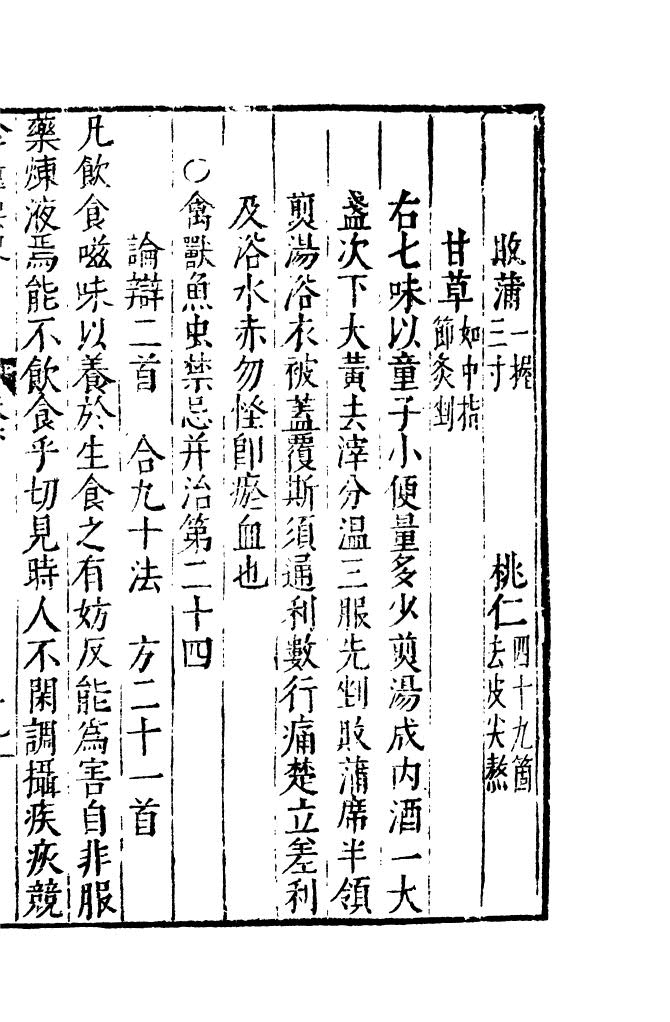 敗蒲一握三寸　桃仁四十九箇去皮尖熬
甘草如中指節炙剉
右七味以童子小便量多少煎湯成内酒一大
盞次下大黃去滓分温三服先剉敗蒲席半領
煎湯浴衣被蓋覆斯須通利數行痛楚立差利
及浴水赤勿怪即瘀血也
○禽獸魚虫禁忌并治第二十四
論辯二首　合九十法　方二十一首
凡飲食滋味以養於生食之有妨反能為害自非服
藥煉液焉能不飲食乎切見時人不閑調攝疾疢競